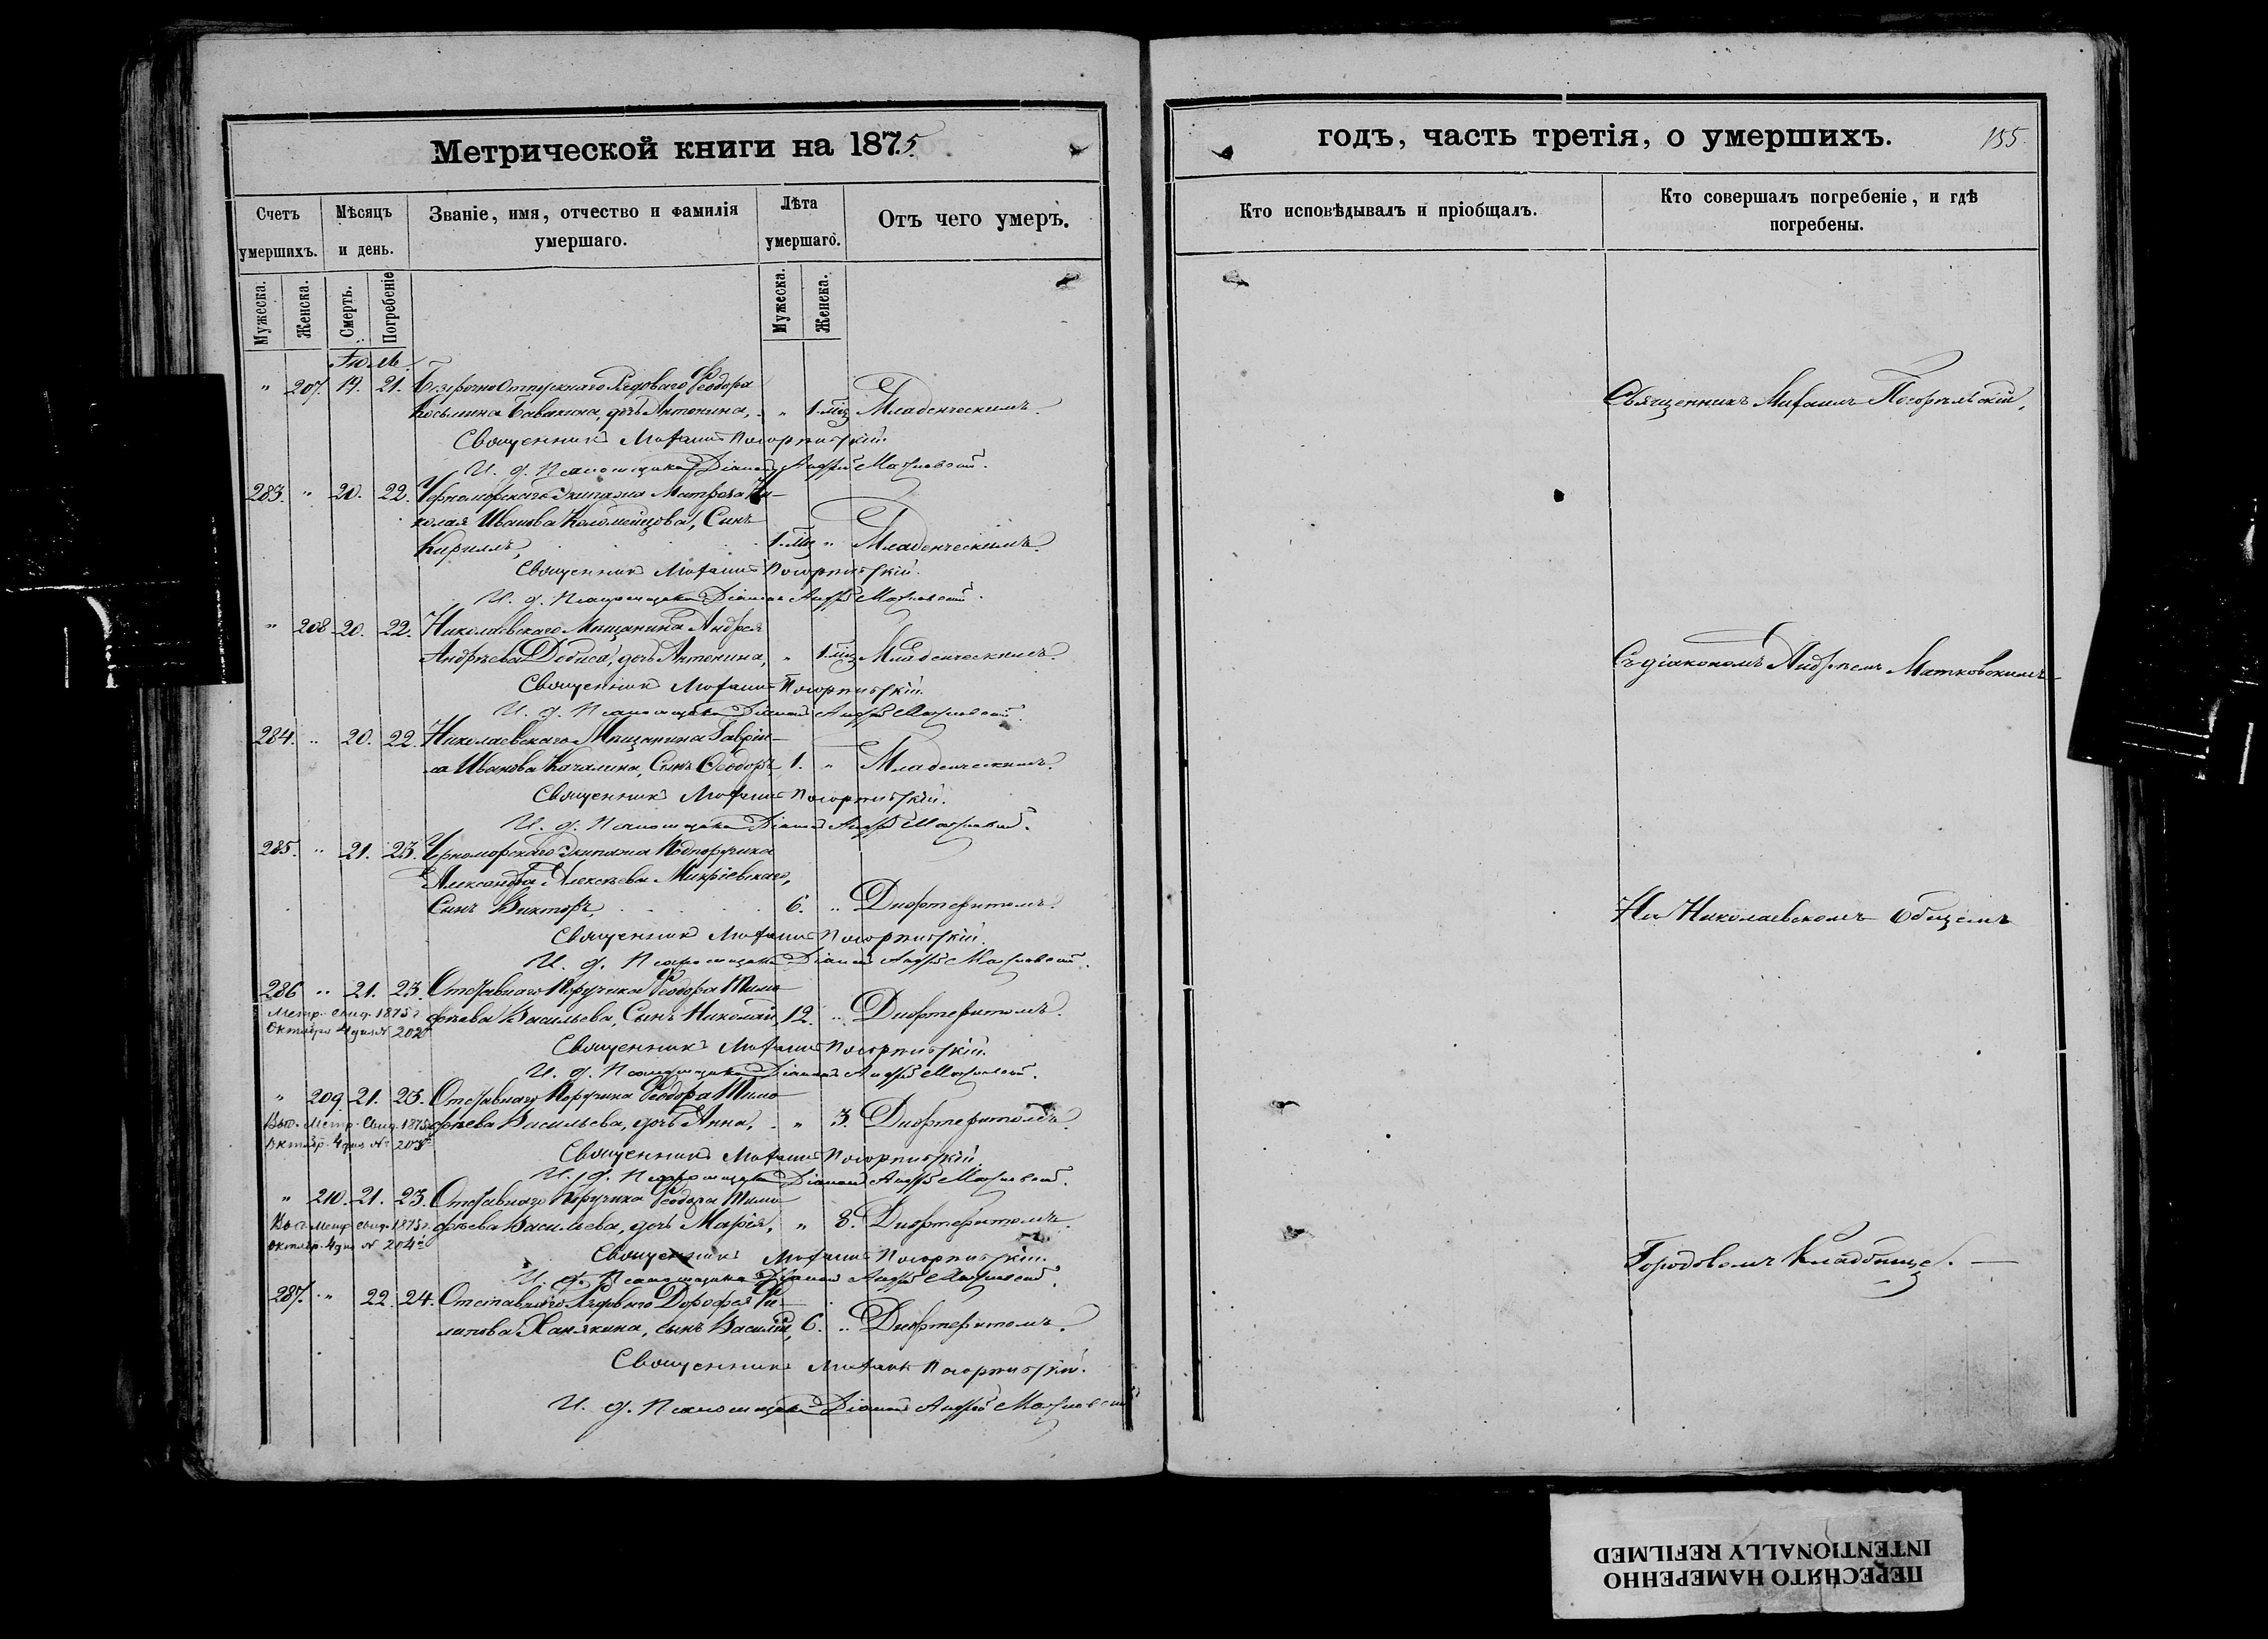 Метрической книги на 1875.
годъ, часть третія, о умершихъ.
155
Счетъ умершихъ.
Мѣсяцъ и день.
Званіе, имя, отчество и фамилія умершаго.
Лѣта умершаго.
Отъ чего умеръ.
Кто исповѣдывалъ и пріобщалъ.
Кто совершалъ погребеніе, и гдѣ погребены.
Мужеска.
Женска.
Смерть.
Погребеніе
Мужеска.
Женска.
Іюль.
" 207. 19. 21. Безсрочноотпускнаго Рядоваго Ѳеодора
Косьмина, дочь Антонина, " 1. мѣс Младенческимъ.
Священникъ Михаилъ Погорѣльскій.
И. д. Псаломщика Діаконъ Андрей Матковскій.
283. " 20. 22. Черноморскаго Экипажа Матроса Ни-
колая Иванова Коломійцова, Сынъ
Кириллъ, 1. мѣс " Младенческимъ.
Священникъ Михаилъ Погорѣльскій.
И. д. Псаломщика Діаконъ Андрей Матковскій.
" 208 20. 22. Николаевскаго Мѣщанина Андрея
Андрѣева, дочь Антонина, " 1. мѣс Младенческимъ.
Священникъ Михаилъ Погорѣльскій.
И. д. Псаломщика Діаконъ Андрей Матковскій.
284. " 20. 22. Николаевскаго Мѣщанина Гаврі-
ла Иванова Качалина, Сынъ Ѳеодоръ 1. " Младенческимъ.
Священникъ Михаилъ Погорѣльскій.
И. д. Псаломщика Діаконъ Андрей Матковскій.
285. " 21. 23. Черноморскаго Экипажа Подпоручика
Александра Алексѣева,
Сынъ Викторъ, 6. " Дифтеритомъ.
Священникъ Михаилъ Погорѣльскій.
И. д. Псаломщика Діаконъ Андрей Матковскій.
286 " 21. 23. Отставнаго Поручика Ѳеодора Тимо-
фѣева Васильева, Сынъ Николай, 12. " Дифтеритомъ.
Метр. свид. 1875 г.
Октября 4 дня №
Священникъ Михаилъ Погорѣльскій.
И. д. Псаломщика Діаконъ Андрей Матковскій.
" 209. 21. 23. Отставнаго Поручика Ѳеодора Тимо-
фѣева Васильева, дочь Анна, " 3. Дифтеритомъ.
Выд. Метр. Свид. 1875
Октябр. 4 дня №
Священникъ Михаилъ Погорѣльскій.
И. д. Псаломщика Діаконъ Андрей Матковскій.
" 210. 21. 23. Отставнаго Поручика Ѳеодора Тимо-
фѣева Васильева, дочь Марія, " 8. Дифтеритомъ.
Выд. Метр. свид. 1875 г.
Октябр. 4 дня № 204
Священникъ Михаилъ Погорѣльскій.
И. д. Псаломщика Діаконъ Андрей Матковскій.
287. " 22. 24. Отставнаго Рядоваго Дорофея Фи-
липова Ханякина, сынъ Василій, 6. " Дифтеритомъ.
Священникъ Михаилъ Погорѣльскій.
И. д. Псаломщика Діаконъ Андрей Матковскій
Священникъ Михаилъ Погорѣльскій,
Съ діакономъ Андреемъ Матковскимъ
На Николаевскомъ Общемъ
Городовомъ Кладбищѣ.
ПЕРЕСНЯТО НАМЕРЕННО
INTENTIONALLY REFILMED